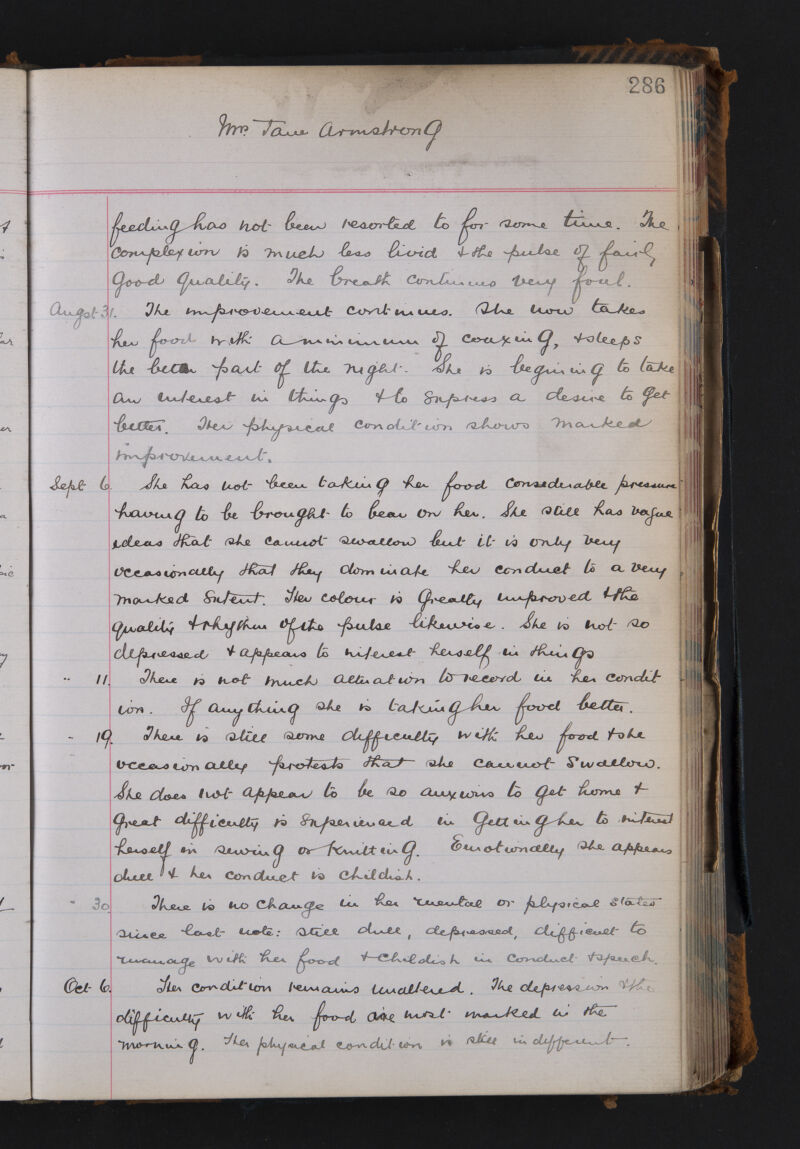 286
Mrs Jane Armstrong
feeding has not been resorted to for some time. The
complexion is much less livid & the pulse of fairly
good quality. The breath continues very foul.
Augst 31. The improvement continues. She now takes
her food with a minimum of coaxing, & sleeps
the better part of the night. She is begining to take
an interest in things & to express a desire to get
better. Her physical condition shows marked
improvement.
Sept 6. She has not been taking her food considerable pressure
having to be brought to bear on her. She still has vague
ideas that she cannot swallow but it is only very
occasionally that they dominate her conduct to a very
marked extent. Her colour is greatly improved & the
quality & rhythm of the pulse likewise. She is not so
depressed & appears to interest herself in things
" 11. There is not much alteration to record in her condit
ion. If anything she is taking her food better.
" 19. There is still some difficulty with her food & she
occasionally protests that she cannot swallow.
She does not appear to be so anxious to get home &
great difficulty is experienced in getting her to interest
herself in sewing or knitting. Emotionally she appears
dull & her conduct is childish.
" 30. There is no change in her mental or physical states
since last note: still dull, depressed, difficult to
manage with her food & childish in conduct & speech.
Oct 6. Her condition remains unaltered. The depression & the
difficulty with her food are most marked in the
morning. Her physical condition is still indifferent.